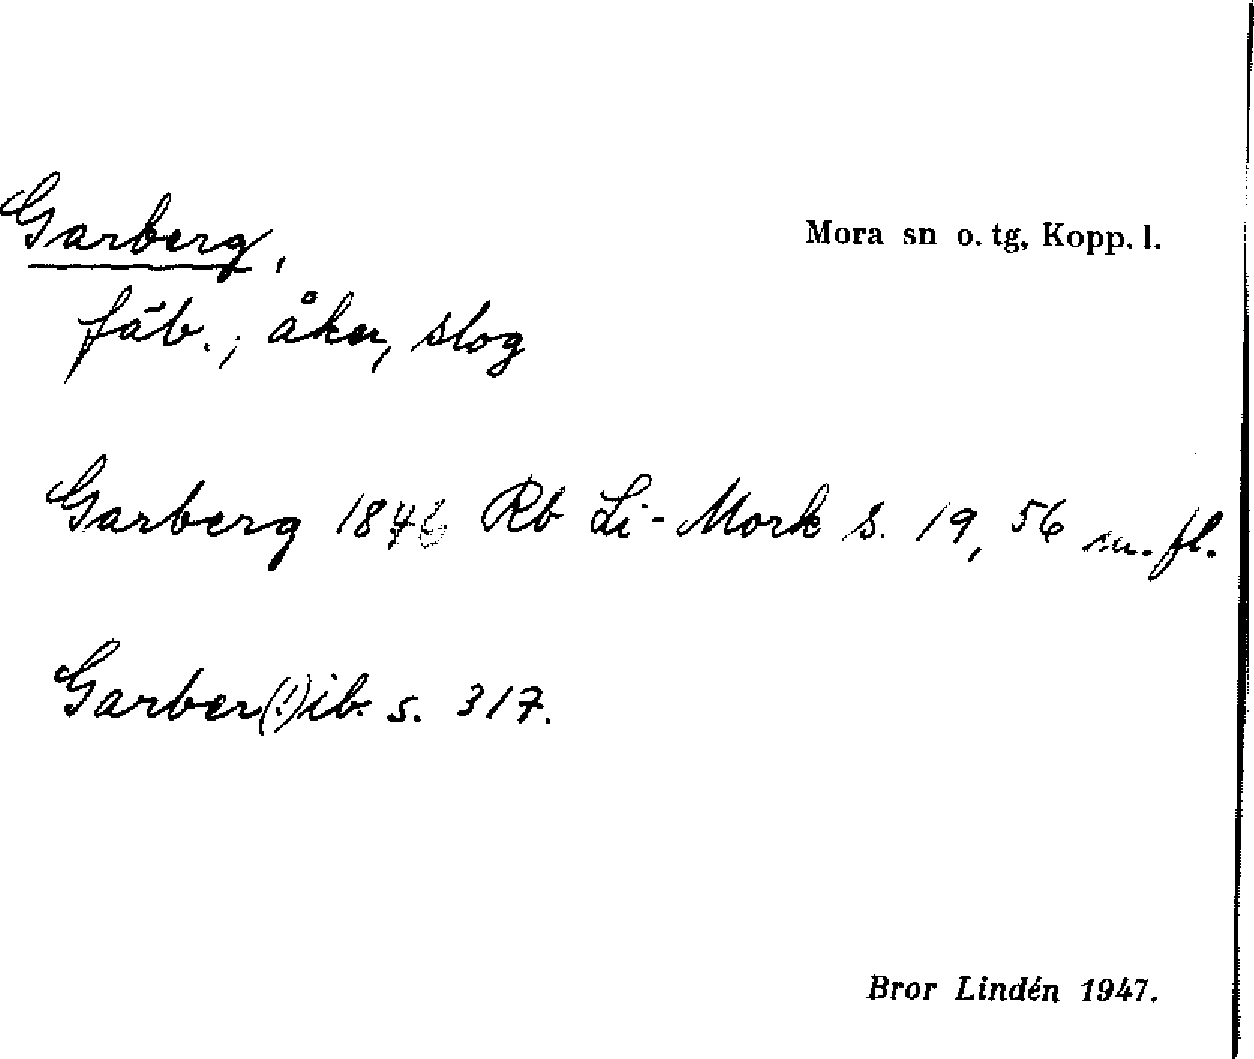 Garberg,
Mora sn o. tg, Kopp. l.
fäb., åker, slog
Garberg 1846 Rb Li-Mork s. 19, 56 m. fl.
Garber(!) ib. s. 317.
Bror Lindén 1947.